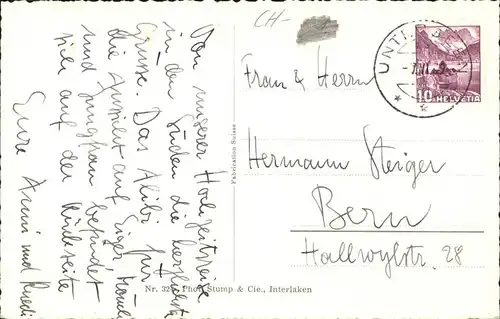 CH-
Von unserer Hochzeitsreise
in den Süden die herzlichsten
Grüsse. Das Alibi für
die Aussicht auf Eiger Mönch
und Jungfrau befindet
sich auf der Rückseite
Eure Anni und Ruedi
Fabrication Suisse
Nr. Phot. Stump & Cie., Interlaken
UNT
10 HELVETIA
Frau & Herrn
Hermann Steiger
Bern
Hallwylstr. 28